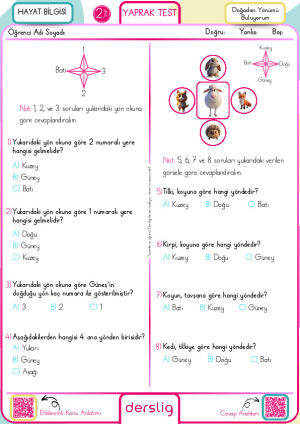 HAYAT BİLGİSİ
2
YAPRAK TEST
Doğadan Yönümü
Buluyorum
Öğrenci Adı Soyadı
Doğru:
Yanlış:
Boş:
1
Batı
3
2
Not: 1, 2, ve 3. soruları yukarıdaki yön okuna
göre cevaplandıralım.
1) Yukarıdaki yön okuna göre 2 numaralı yere
hangisi gelmelidir?
A) Kuzey
B) Güney
C) Batı
2) Yukarıdaki yön okuna göre 1 numaralı yere
hangisi gelmelidir?
A) Doğu
B) Güney
C) Kuzey
3) Yukarıdaki yön okuna göre Güneş'in
doğduğu yön kaç numara ile gösterilmiştir?
A) 3
B) 2
C) 1
4) Aşağıdakilerden hangisi 4 ana yönden birisidir?
A) Yukarı
B) Güney
C) Aşağı
Kuzey
Batı
Doğu
Güney
Not: 5, 6, 7 ve 8. soruları yukarıdaki verilen
görsele göre cevaplandıralım.
5) Tilki, koyuna göre hangi yöndedir?
A) Kuzey
B) Doğu
C) Batı
6) Kirpi, koyuna göre hangi yöndedir?
A) Kuzey
B) Doğu
C) Güney
7) Koyun, tavşana göre hangi yöndedir?
A) Batı
B) Kuzey
C) Güney
8) Kedi, tilkiye göre hangi yöndedir?
A) Güney
B) Doğu
C) Batı
Etkileşimli Konu Anlatımı
derslig
Cevap Anahtarı